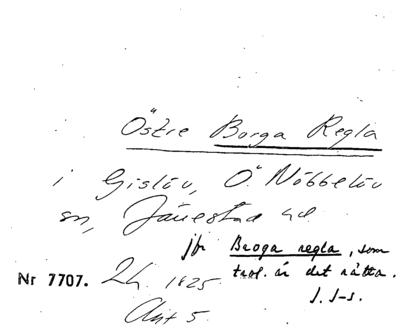 Östre Borga Regla
i Gislöv, Ö. Nöbbelöv
sn, Järrestad hd
jfr Broga regla, som
trol. är det rätta.
J. S-s.
Nr 7707. Lh. 1825
Akt 5.